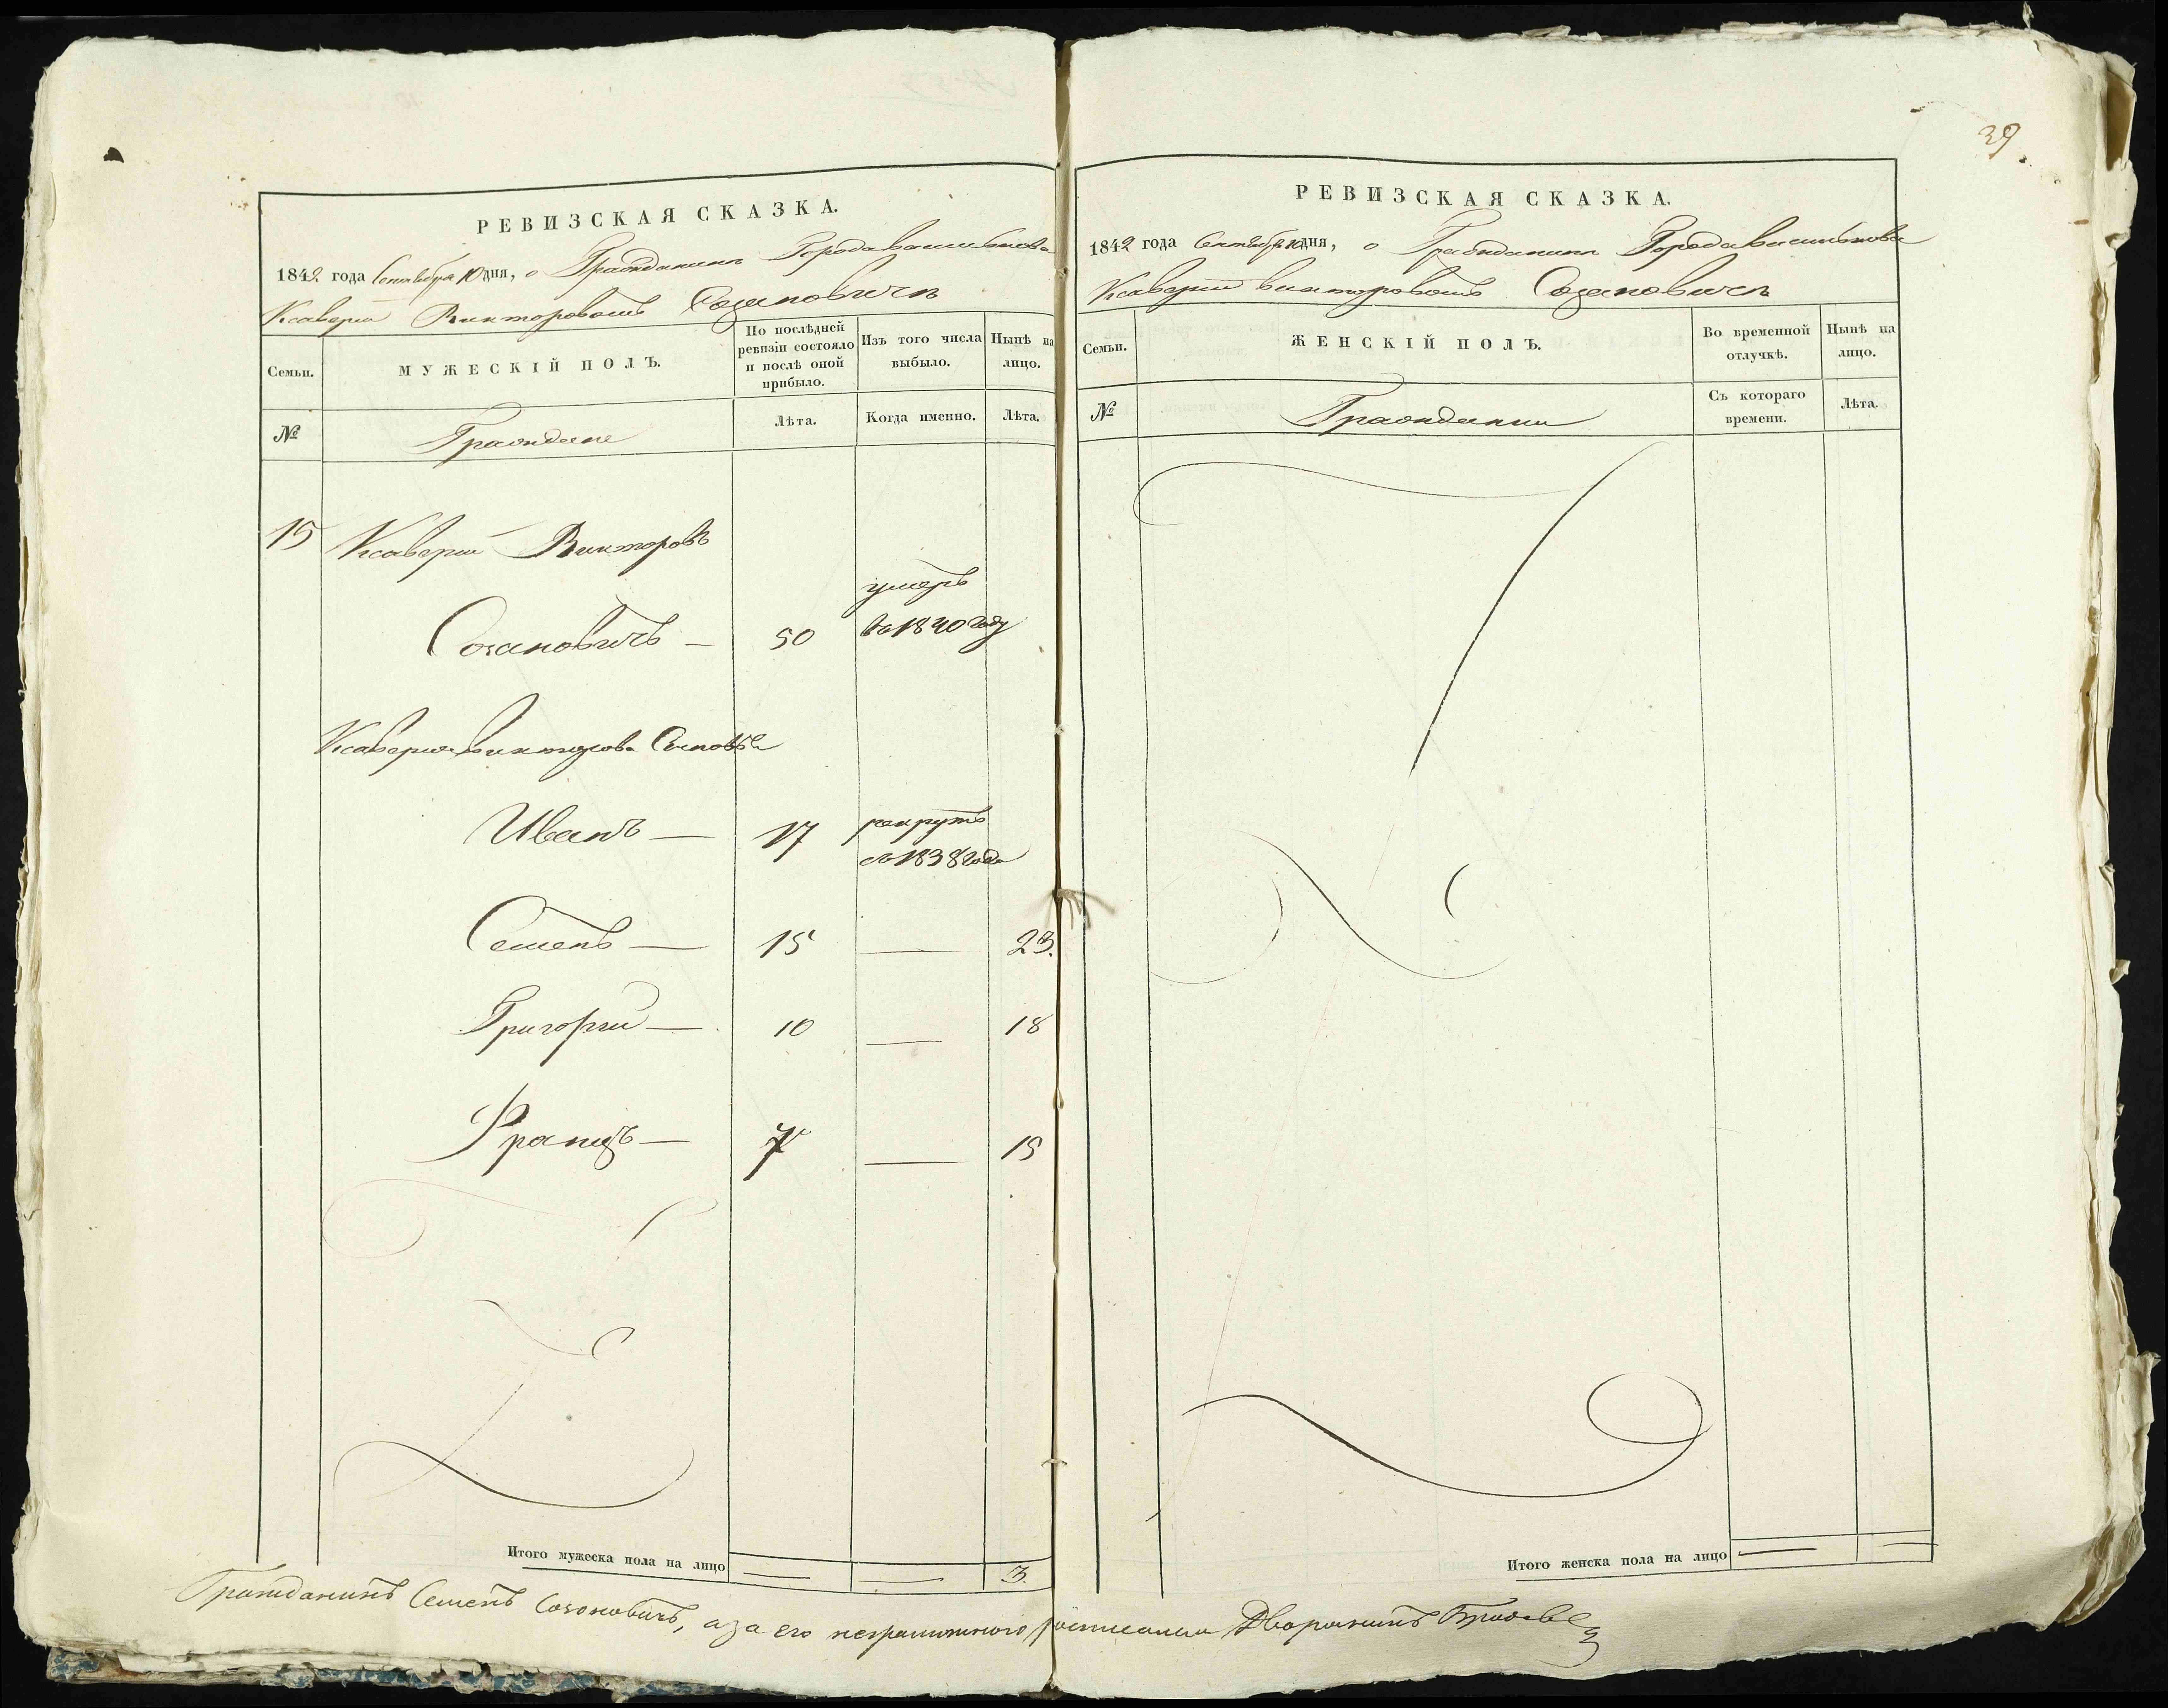 39
РЕВИЗСКАЯ СКАЗКА.
1842 года Сентября 10 дня, о Гражданинѣ Города Василькова
Ксаверій Викторовомъ Созановичѣ
Семьи.
МУЖЕСКІЙ ПОЛЪ.
По послѣдней ревизіи состояло и послѣ оной прибыло.
Изъ того числа выбыло.
Нынѣ на лицо.
№
Граждане
Лѣта.
Когда именно.
Лѣта.
15 Ксаверій Викторовъ
умеръ
Созановичъ — 50 въ 1840 году
Ксаверія Викторова Сыновья
Иванъ — 17 рекрутъ
съ 1838 года
Семенъ — 15 — 23.
Григорій — 10 — 18
Францъ — 7 — 15
Итого мужеска пола на лицо — — 3.
РЕВИЗСКАЯ СКАЗКА.
1842 года Сентября 10 дня, о Гражданинѣ Города Василькова
Ксаверій Викторовомъ Созановичѣ
Семьи.
ЖЕНСКІЙ ПОЛЪ.
Во временной отлучкѣ.
Нынѣ на лицо.
№
Гражданки
Съ котораго времени.
Лѣта.
Итого женска пола на лицо — —
Гражданинъ Семенъ Созоновичъ, а за его неграмотного росписался Дворянинъ